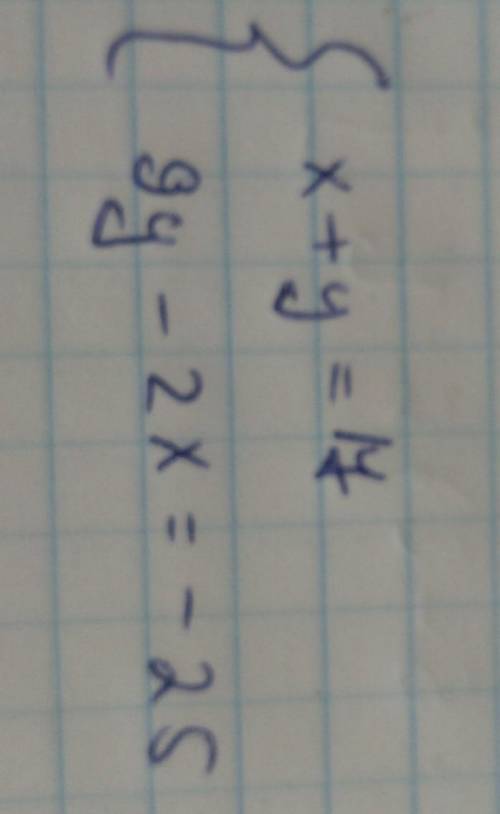 x + y = 7
9y - 2x = - 25